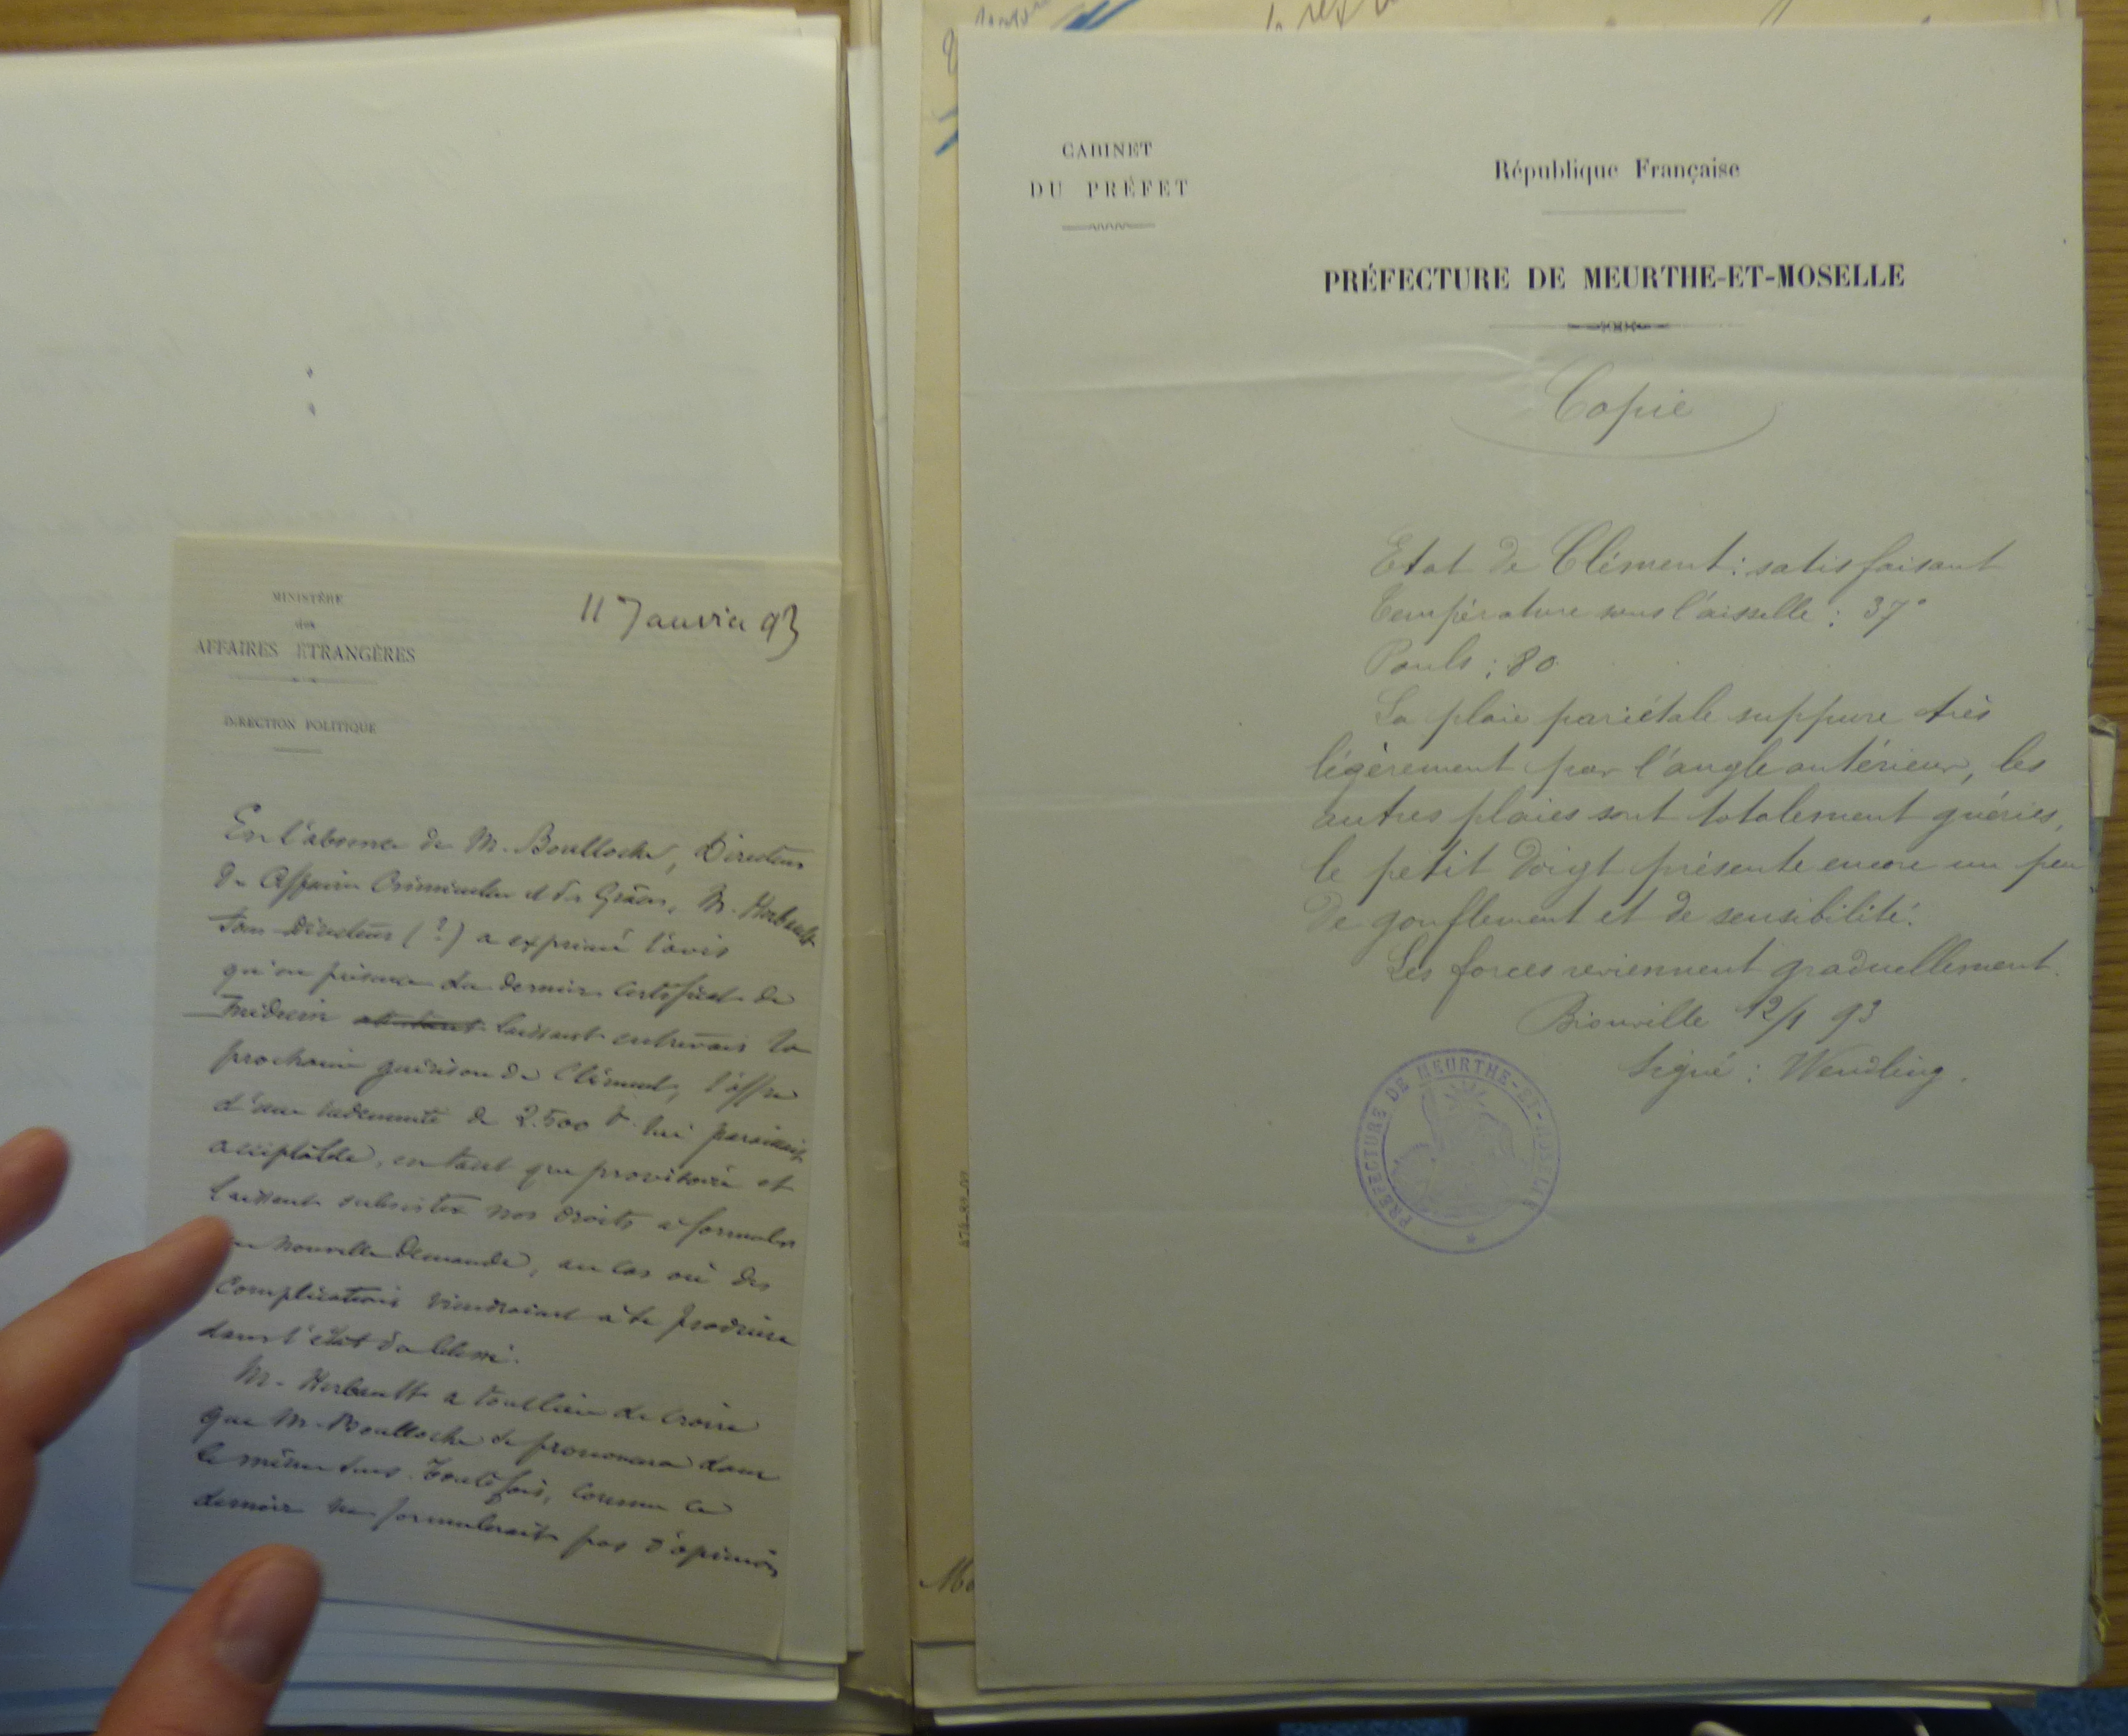 MINISTÈRE
des
AFFAIRES ÉTRANGÈRES
DIRECTION POLITIQUE
11 Janvier 93
En l'absence de M. Boulloche, Directeur
des Affaires Criminelles et des Grâces, M. Herbault
Sous Directeur (?) a exprimé l'avis
qu'en présence du dernier certificat de
médecin laissant entrevoir la
prochaine guérison de Clément, l'offre
d'une indemnité de 2.500 f. lui paraissait
acceptable, en tant que provisoire et
laissant subsister nos droits à formuler
nouvelle demande, au cas où des
complications viendraient à se produire
dans l'état du blessé.
M. Herbault a tout lieu de croire
que M. Boulloche se prononcera dans
le même sens. Toutefois, comme ce
dernier ne formulerait pas d'opinion
CABINET
DU PRÉFET
République Française
PRÉFECTURE DE MEURTHE-ET-MOSELLE
Copie
Etat de Clément : satisfaisant
Température sous l'aisselle : 37°
Pouls : 80
La plaie pariétale suppure très
légèrement par l'angle antérieur, les
autres plaies sont totalement guéries,
le petit doigt présente encore un peu
de gonflement et de sensibilité.
Les forces reviennent graduellement.
Bionville 12/1 93
Signé : Wendling.
PRÉFECTURE DE MEURTHE-ET-MOSELLE